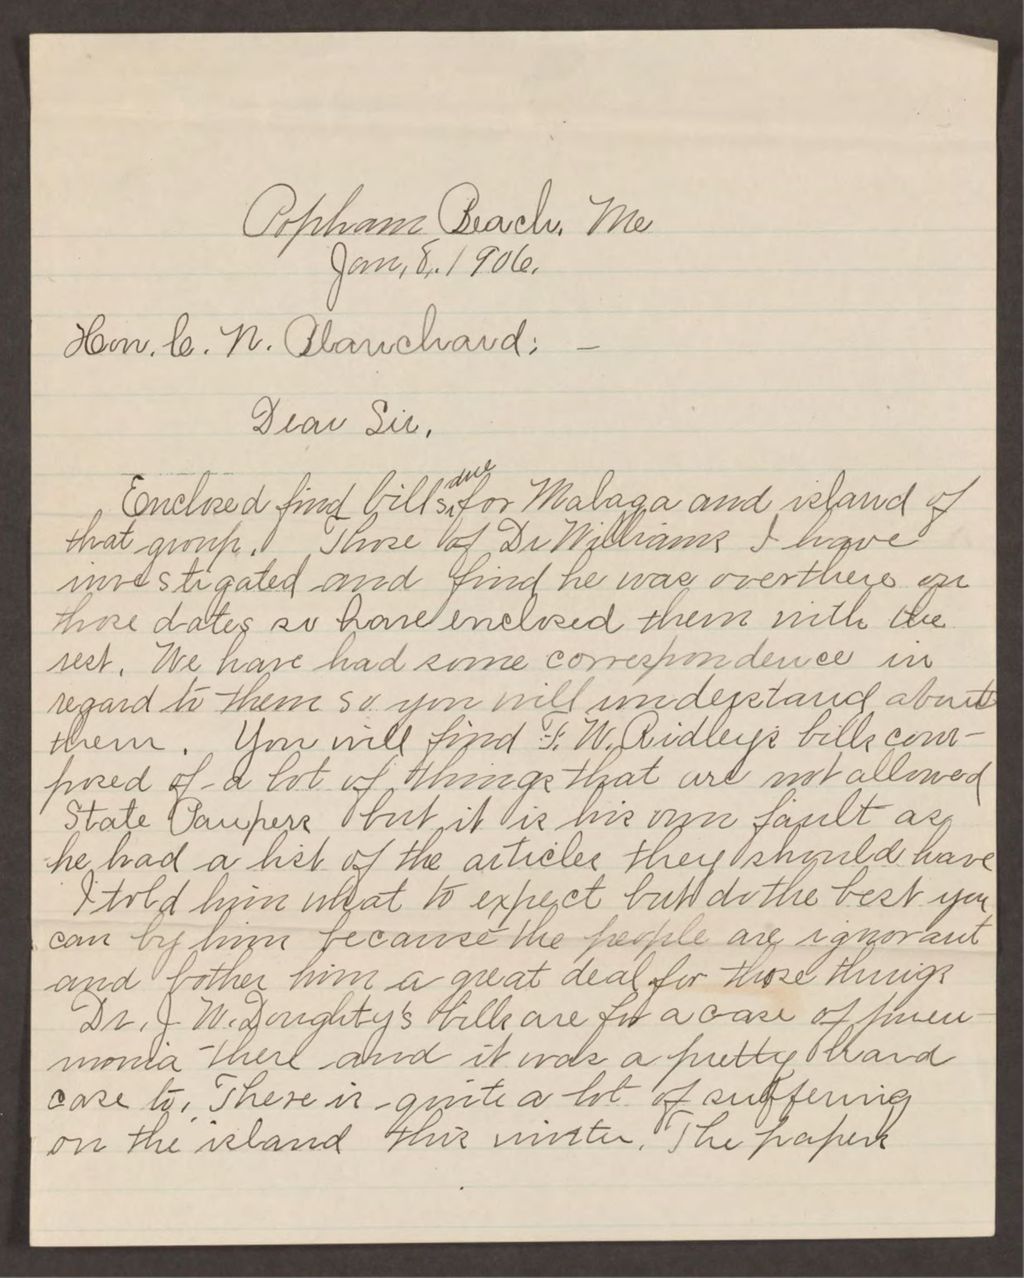 Popham Beach, Me
Jan, 8, 1906.
Hon. C. N. Blanchard; —
Dear Sir,
due
Enclosed find bills, for Malaga and island of
that group. Those of Dr Williams I have
investigated and find he was over there on
those dates so have enclosed them with the
rest. We have had some correspondence in
regard to them so you will understand about
them. You will find F. W. Ridley's bills com-
posed of a lot of things that are not allowed
State Paupers but it is his own fault as
he had a list of the articles they should have
I told him what to expect but do the best you
can by him because the people are ignorant
and bother him a great deal for those things
Dr. J. W. Doughty's bills are for a case of pneu-
monia there and it was a pretty hard
case to, There is quite a lot of suffering
on the island this winter. The papers